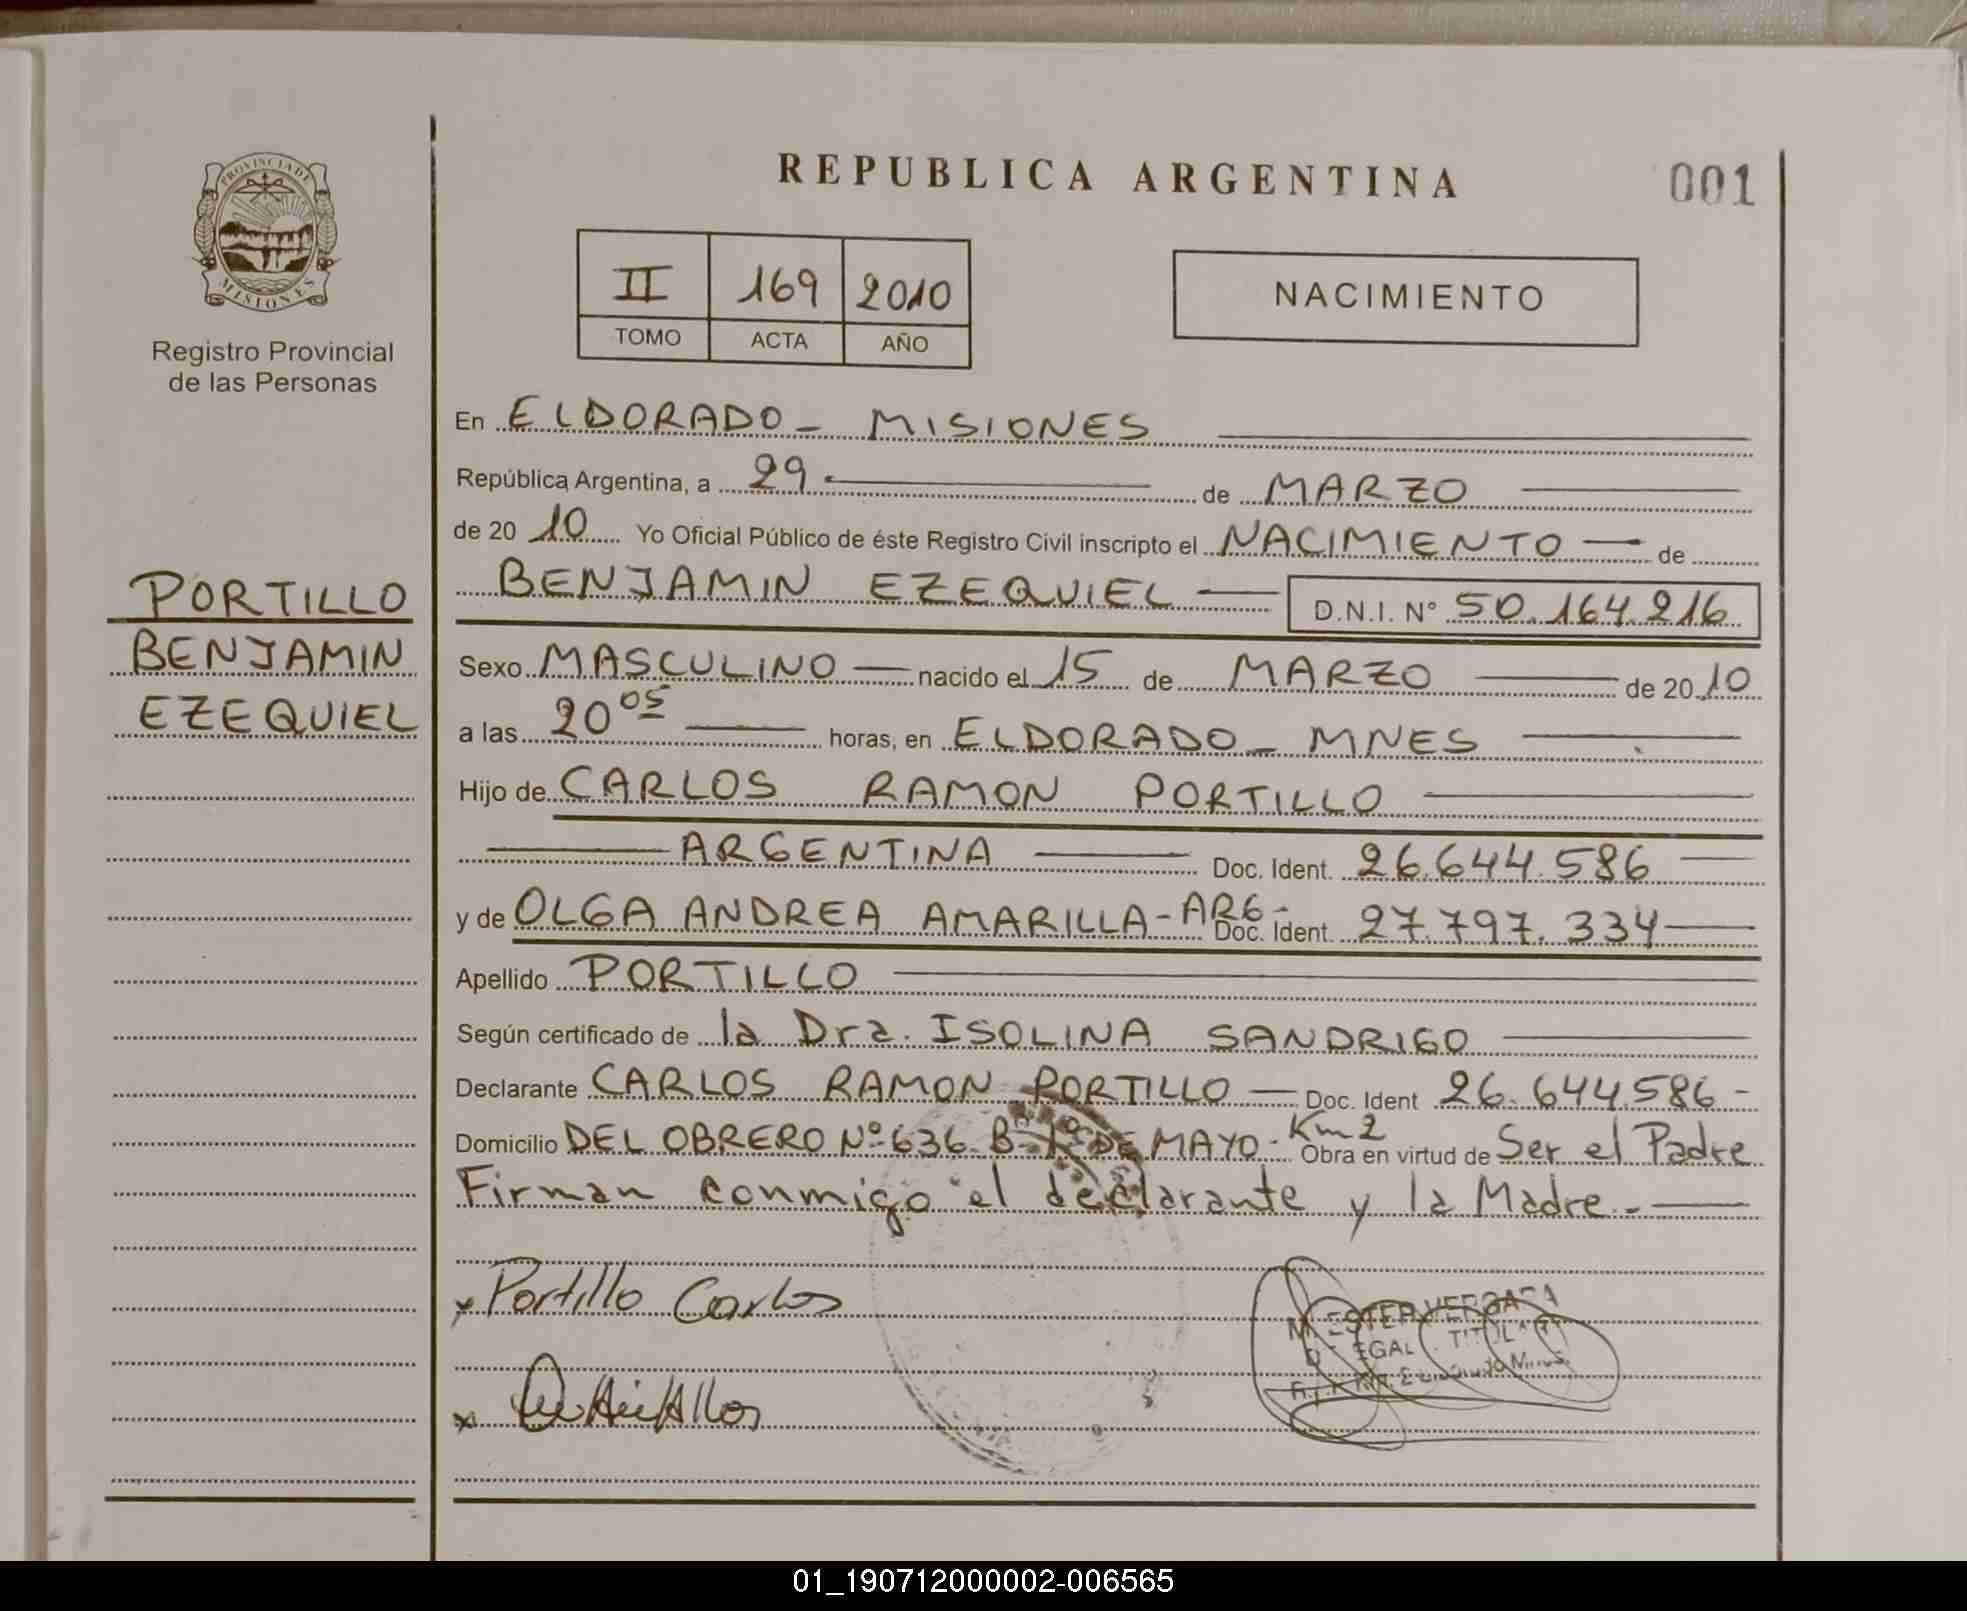 PROVINCIA DE
MISIONES
Registro Provincial
de las Personas
PORTILLO
BENJAMIN
EZEQUIEL
REPUBLICA ARGENTINA
001
II 169 2010
TOMO ACTA AÑO
NACIMIENTO
En ELDORADO - MISIONES
República Argentina, a 29 de MARZO
de 20 10 Yo Oficial Público de éste Registro Civil inscripto el NACIMIENTO de
BENJAMIN EZEQUIEL D.N.I. N° 50.164.216
Sexo MASCULINO nacido el 15 de MARZO de 20 10
a las 20 05 horas, en ELDORADO - MNES
Hijo de CARLOS RAMON PORTILLO
ARGENTINA Doc. Ident. 26.644.586
y de OLGA ANDREA AMARILLA - ARG - Doc. Ident. 27.797.334
Apellido PORTILLO
Según certificado de la Dra. ISOLINA SANDRIGO
Declarante CARLOS RAMON PORTILLO Doc. Ident 26.644.586 -
Domicilio DEL OBRERO Nº 636 B° 1° DE MAYO - Km 2 Obra en virtud de Ser el Padre
Firman conmigo el declarante y la Madre.-
x Portillo Carlos
ESTER VERGARA
TITULAR
x
01_190712000002-006565